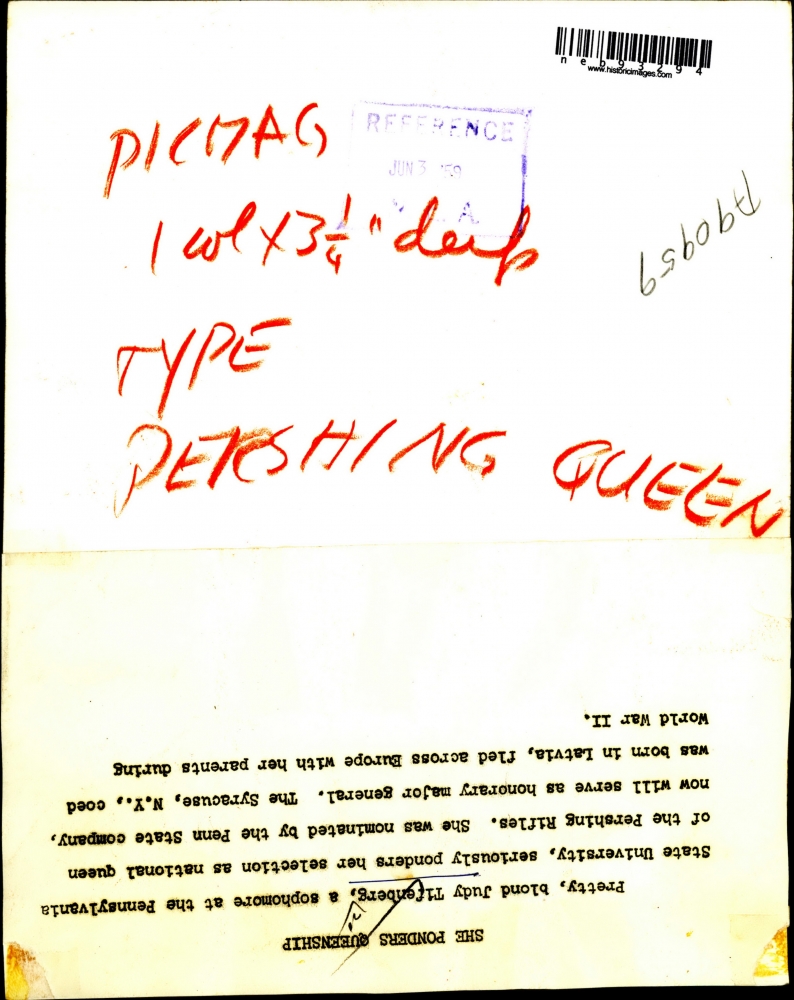 neb93294
www.historicimages.com
REFERENCE
JUN 3 '59
A.
PICMAG
1 col X 3 1/4" deep
TYPE
PERSHING QUEEN
SHE PONDERS QUEENSHIP
Pretty, blond Judy Tifenberg, a sophomore at the Pennsylvania
State University, seriously ponders her selection as national queen
of the Pershing Rifles. She was nominated by the Penn State company,
now will serve as honorary major general. The Syracuse, N.Y., coed
was born in Latvia, fled across Europe with her parents during
World War II.